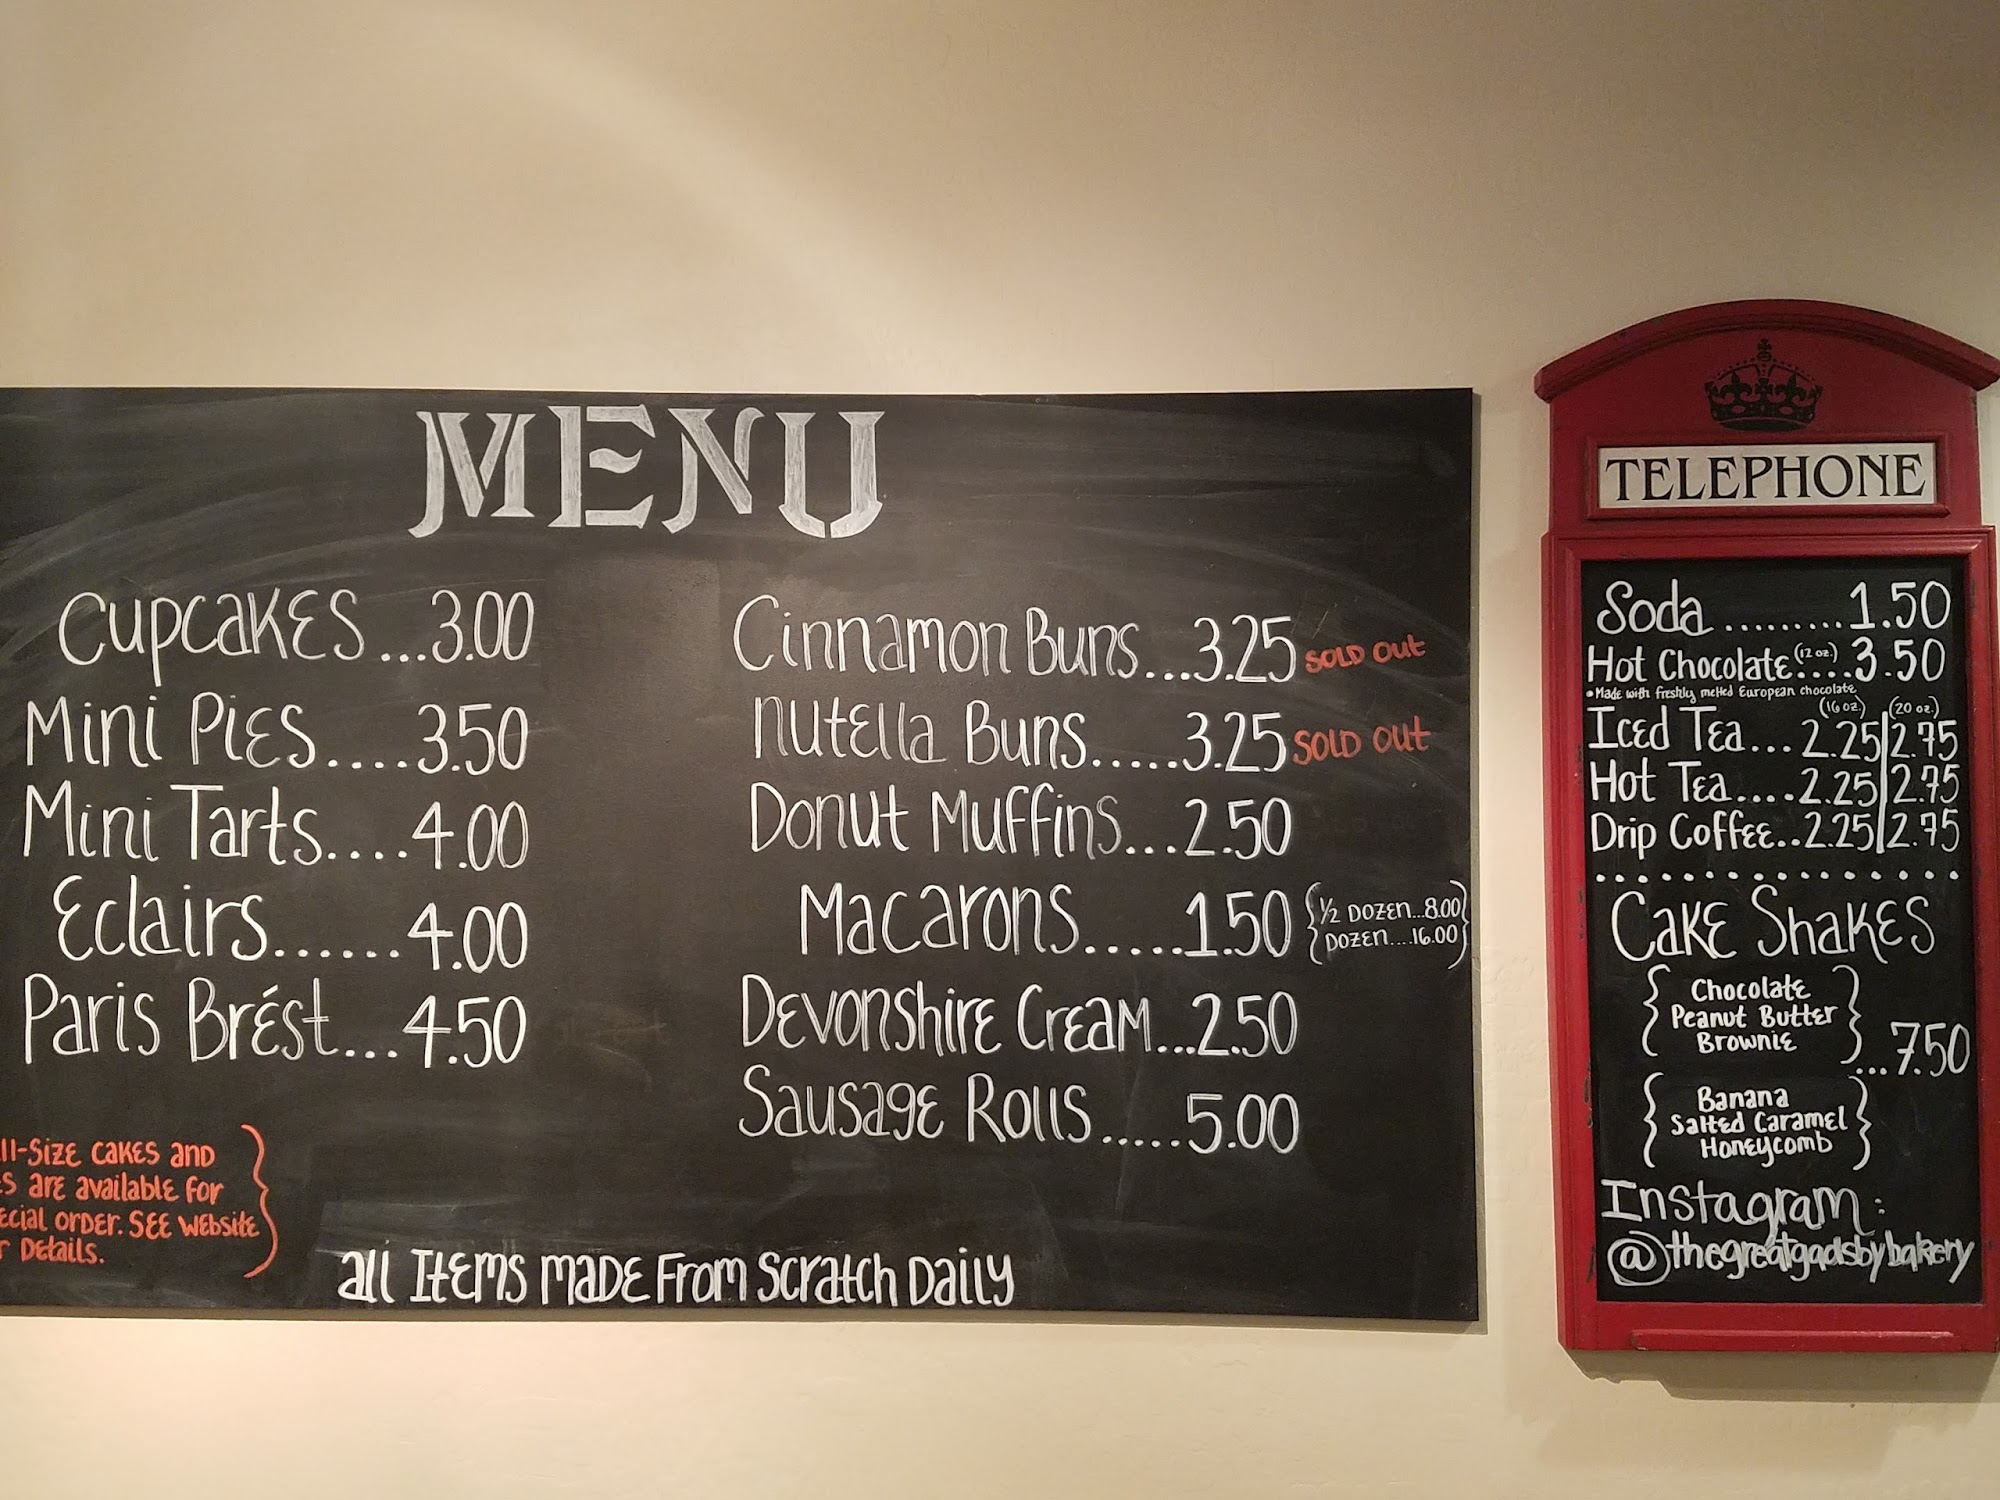 MENU
Cupcakes...3.00
Mini Pies....3.50
Mini Tarts....4.00
Eclairs......4.00
Paris Brést...4.50
ll-Size cakes and
s are available for
ecial order. See website
r Details.
Cinnamon Buns...3.25 SOLD OUT
Nutella Buns.....3.25 SOLD OUT
Donut Muffins...2.50
Macarons.....1.50 {1/2 DOZEN...8.00
DOZEN....16.00}
Devonshire Cream...2.50
Sausage Rolls.....5.00
All Items made From Scratch Daily
TELEPHONE
Soda.........1.50
Hot Chocolate (12 oz.)....3.50
•Made with freshly melted European chocolate
(16 oz.) (20 oz.)
Iced Tea...2.25|2.75
Hot Tea....2.25|2.75
Drip Coffee..2.25|2.75
Cake Shakes
{Chocolate
Peanut Butter
Brownie}
...7.50
{Banana
Salted Caramel
Honeycomb}
Instagram:
@thegreatgadsbybakery